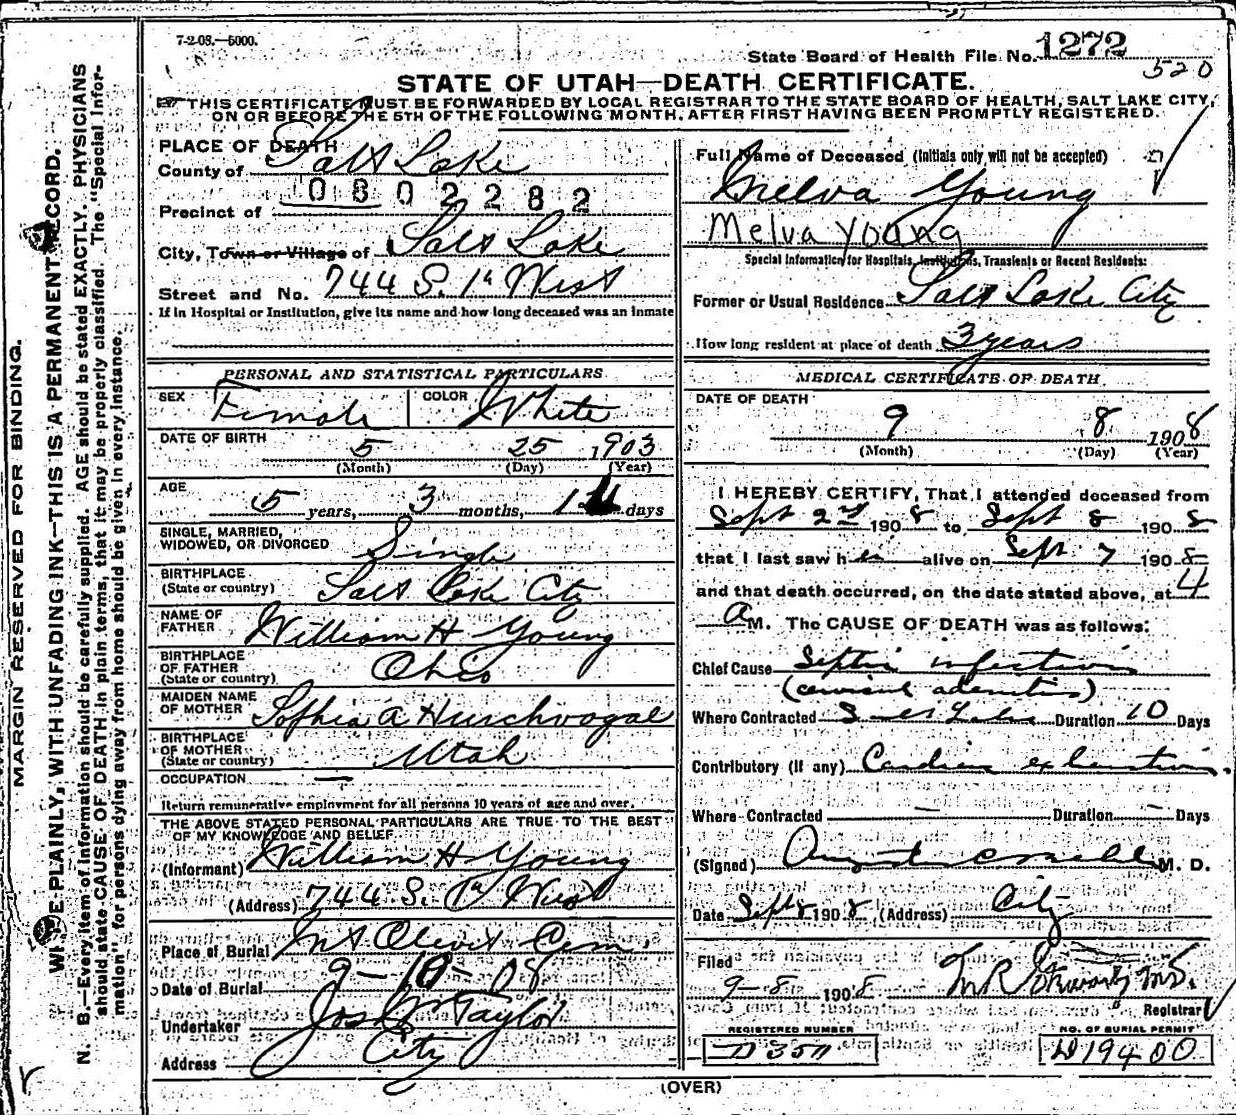 7-2-08.—5000.
State Board of Health File No. 1272
520
STATE OF UTAH—DEATH CERTIFICATE.
THIS CERTIFICATE MUST BE FORWARDED BY LOCAL REGISTRAR TO THE STATE BOARD OF HEALTH, SALT LAKE CITY,
ON OR BEFORE THE 5TH OF THE FOLLOWING MONTH, AFTER FIRST HAVING BEEN PROMPTLY REGISTERED.
PLACE OF DEATH
County of Salt Lake
0802282
Precinct of
City, Town or Village of Salt Lake
Street and No. 744 S. 1st West
If in Hospital or Institution, give its name and how long deceased was an inmate
PERSONAL AND STATISTICAL PARTICULARS
SEX Female COLOR White
DATE OF BIRTH
5 25 1903
(Month) (Day) (Year)
AGE
5 years, 3 months, days
SINGLE, MARRIED,
WIDOWED, OR DIVORCED Single
BIRTHPLACE
(State or country) Salt Lake City
NAME OF
FATHER William H Young
BIRTHPLACE
OF FATHER
(State or country) Ohio
MAIDEN NAME
OF MOTHER Sophia A Hirschvogal
BIRTHPLACE
OF MOTHER
(State or country) Utah
OCCUPATION —
Return remunerative employment for all persons 10 years of age and over.
THE ABOVE STATED PERSONAL PARTICULARS ARE TRUE TO THE BEST
OF MY KNOWLEDGE AND BELIEF.
(Informant) William H Young
(Address) 744 S. 1st West
Place of Burial Mt Olivet Cem
Date of Burial 9-10-08
Undertaker Jos Wm Taylor
Address City
Full Name of Deceased (Initials only will not be accepted)
Melva Young
Melva Young
Special Information for Hospitals, Institutions, Transients or Recent Residents:
Former or Usual Residence Salt Lake City
How long resident at place of death 3 years
MEDICAL CERTIFICATE OF DEATH
DATE OF DEATH
9 8 1908
(Month) (Day) (Year)
I HEREBY CERTIFY, That I attended deceased from
Sept 2nd 1908 to Sept 8 1908
that I last saw her alive on Sept. 7 1908
and that death occurred, on the date stated above, at 4
A M. The CAUSE OF DEATH was as follows:
Chief Cause Septic infection
(cervical adenitis)
Where Contracted Salt Lake Duration 10 Days
Contributory (if any) Cardiac exhaustion.
Where Contracted — Duration — Days
(Signed) M. D.
Date Sept 8 1908 (Address) City
Filed
9-8- 1908 M.D.
Registrar
REGISTERED NUMBER
D 3511
NO. OF BURIAL PERMIT
D 19400
(OVER)
MARGIN RESERVED FOR BINDING.
PLAINLY, WITH UNFADING INK—THIS IS A PERMANENT RECORD.
N. B.—Every item of information should be carefully supplied. AGE should be stated EXACTLY. PHYSICIANS
should state CAUSE OF DEATH in plain terms, that it may be properly classified. The "Special Infor-
mation" for persons dying away from home should be given in every instance.